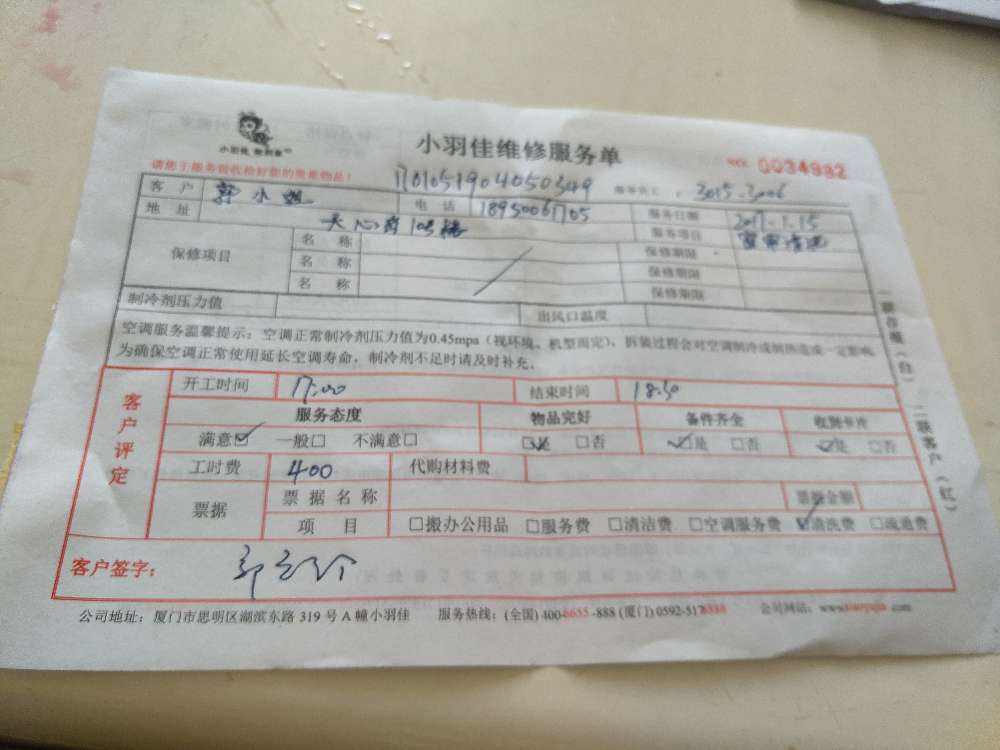 小羽佳维修服务单
小羽佳
0034982
请您于服务前收检好您的贵重物品!
1701051904050349
服务员工
2015.3006
客户
郭小姐
电话
18950061705
服务日期
2017.1.15
地址
天心岛108楼
服务项目
保修项目
名称
保修期限
名称
保修期限
名称
保修期限
制冷剂压力值
出风口温度
空调服务温馨提示:空调正常制冷剂压力值为0.45mpa(视环境、机型而定),拆装过程会对空调制冷或制热造成一定影响
为确保空调正常使用延长空调寿命,制冷剂不足时请及时补充。
客户评定
开工时间
17:00
结束时间
18:30
服务态度
物品完好
备件齐全
收到卡片
满意☑ 一般□ 不满意□
☑是 □否
☑是 □否
☑是 □否
工时费
400
代购材料费
票据
票据名称
票据金额
项目
□搬办公用品 □服务费 □清洁费 □空调服务费 ☑清洗费 □疏通费
客户签字:
公司地址:厦门市思明区湖滨东路 319 号 A 幢小羽佳
服务热线:(全国) 400-6655-888 (厦门) 0592-5178888
公司网站:
二联客户(红)